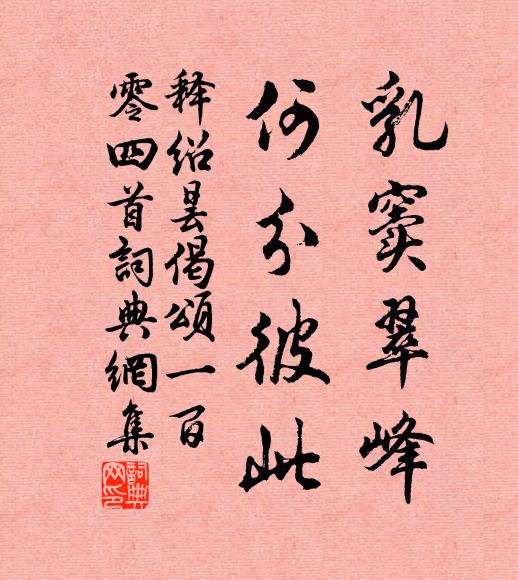 乳窦翠峰
何分彼此
释绍昙偈颂一百
零四首詞典網集
詞典
网印